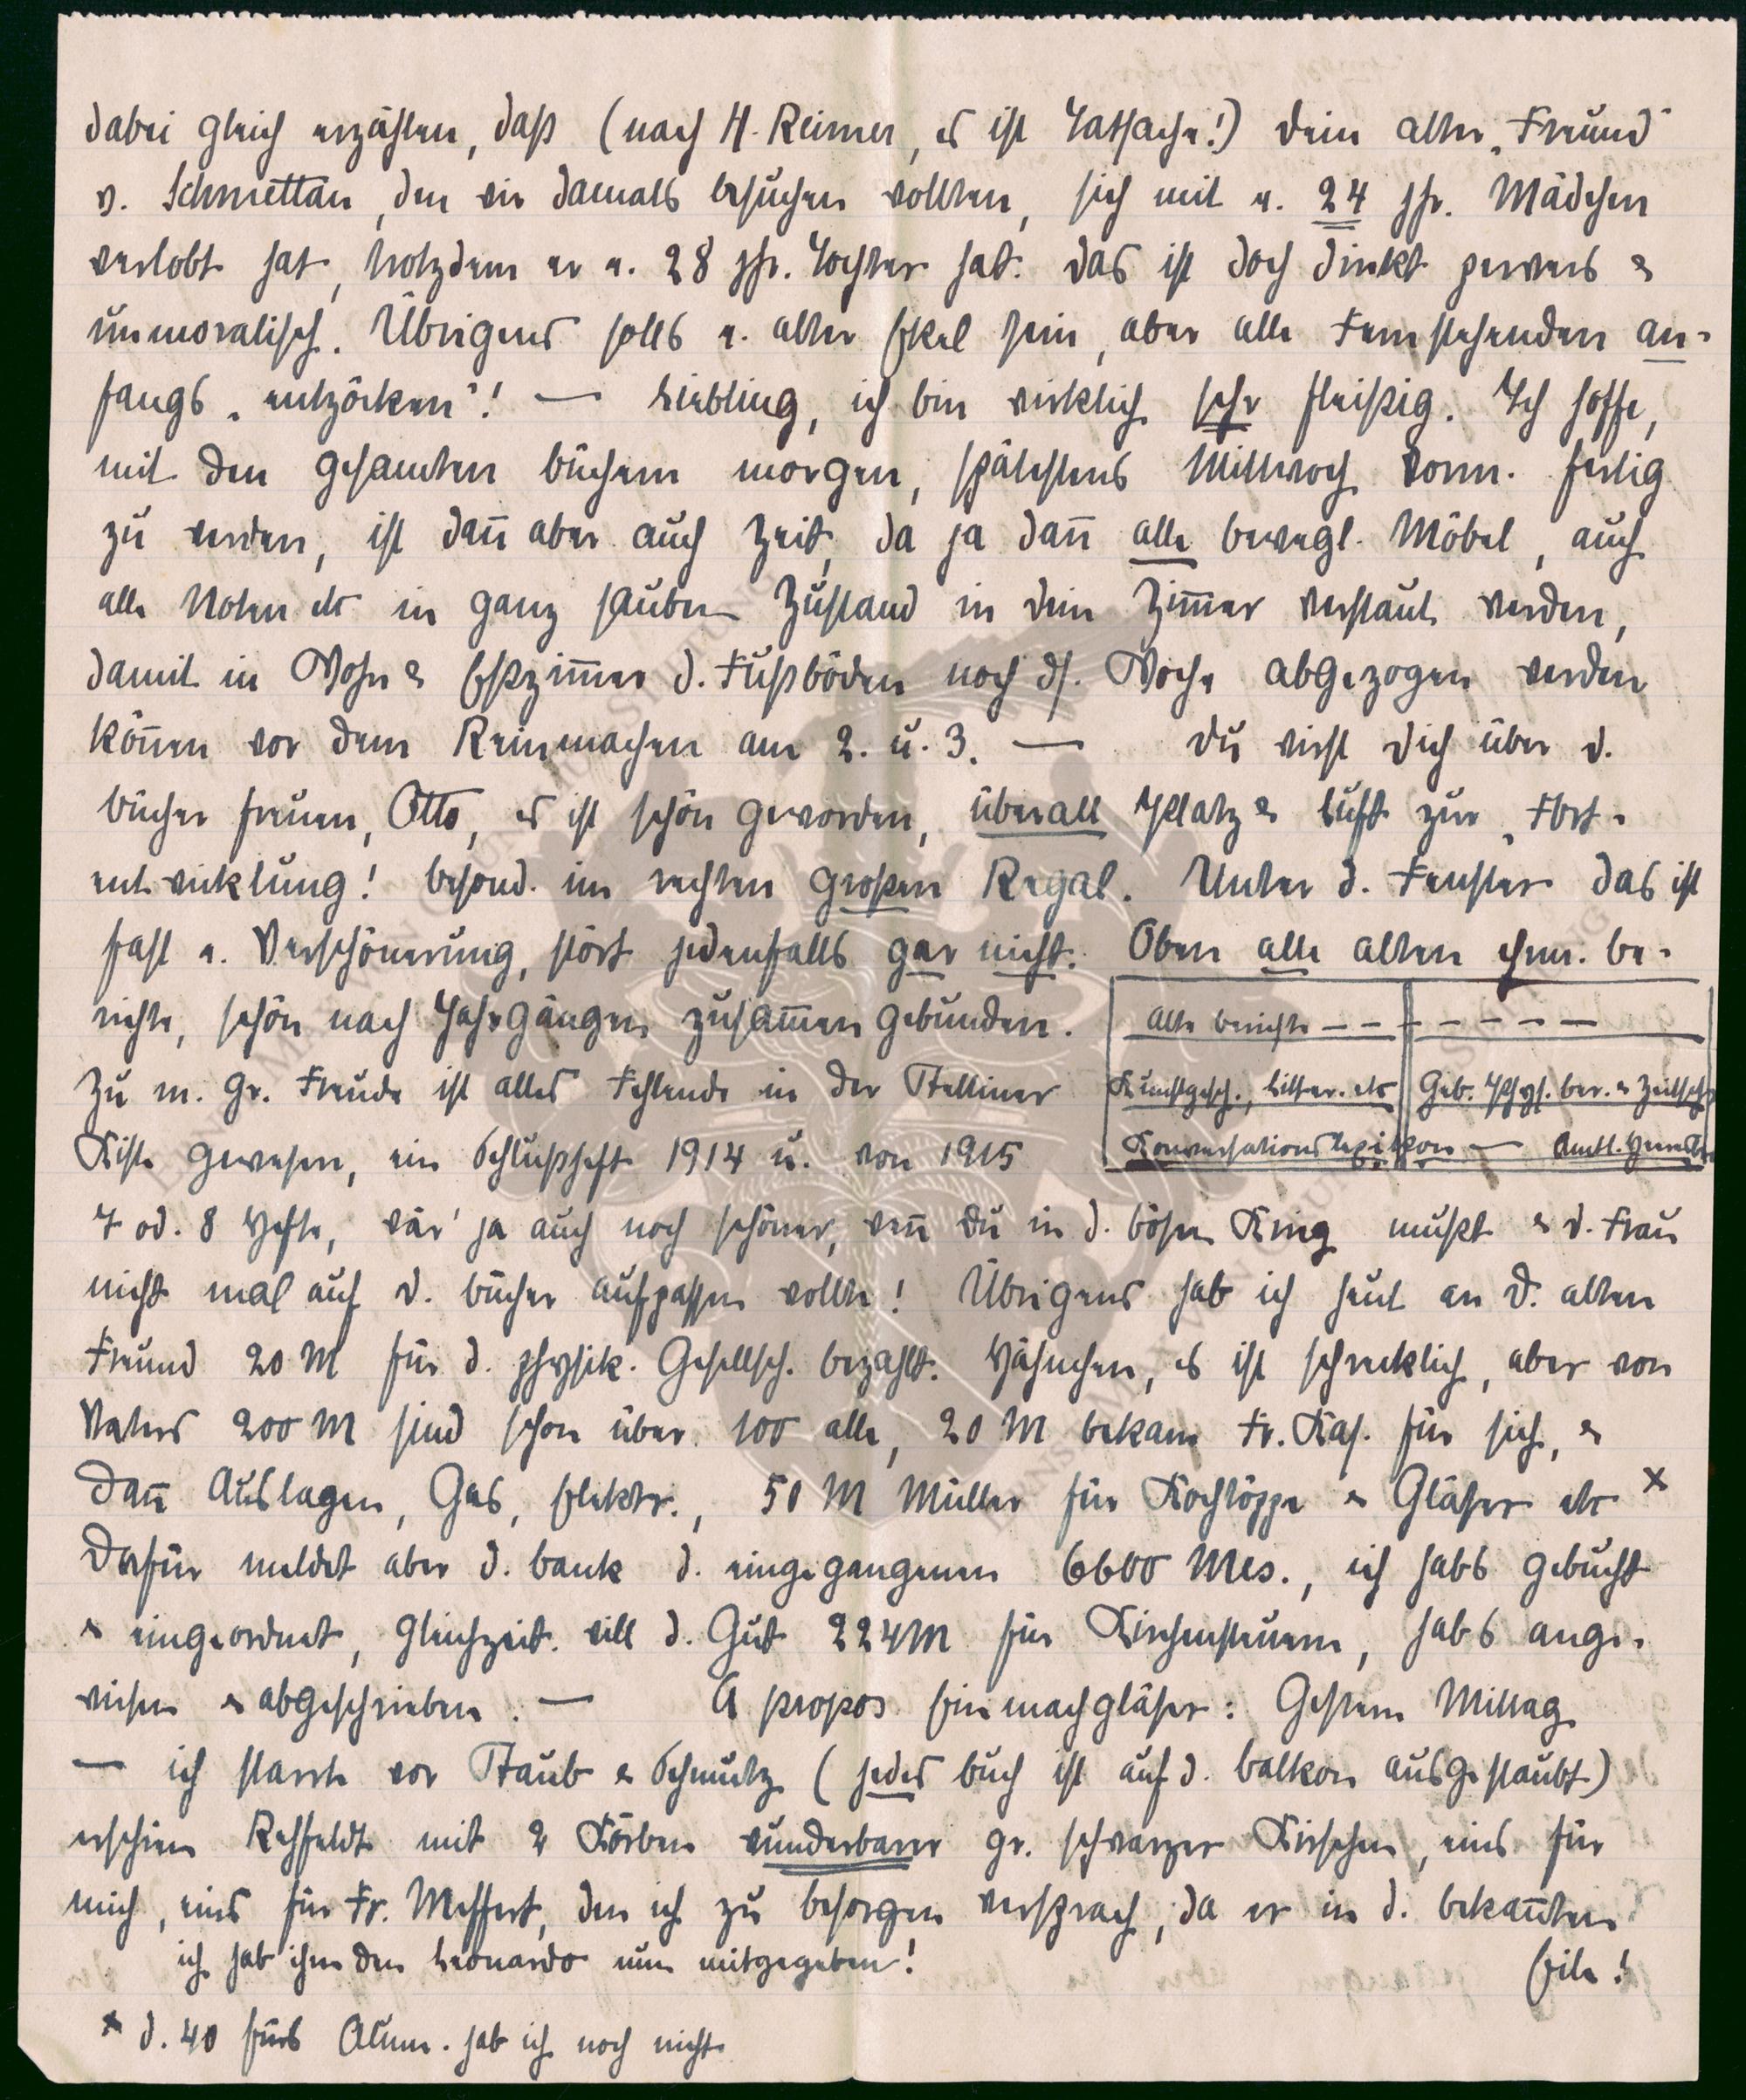 dabei gleich erzählen, daß (nach H. Reimer, es ist Tatsache!) Dein alter „Freund“
v. Schmettau, den wir damals besuchen wollten, sich mit e. 24 jhr. Mädchen
verlobt hat, trotzdem er e. 28 jhr. Tochter hat. Das ist doch direkt pervers &
unmoralisch. Übrigens solls e. alter Ekel sein, aber alle Fernstehenden an-
fangs „entzöcken“! — Liebling, ich bin wirklich sehr fleißig. Ich hoffe,
mit den gesamten Büchern morgen, spätestens Mittwoch Vorm. fertig
zu werden, ist dañ aber auch Zeit, da ja dañ alle bewegl. Möbel, auch
alle Noten etc in ganz saubern Zustand in Dein Zim̄er verstaut werden,
damit in Wohn & Eßzim̄er d. Fußböden noch ds. Woche abgezogen werden
köñen vor dem Reinmachen am 2. u. 3. — Du wirst Dich über D.
Bücher freuen, Otto, es ist schön geworden, überall Platz & Luft zur „Fort-
entwicklung“! Besond. im rechten großen Regal. Unter d. Fenster das ist
fast e. Verschönerung, stört jedenfalls gar nicht. Oben alle alten chem. Be-
richte, schön nach Jahrgängen zusam̄en gebunden.
Alte Berichte — — — — — — —
Zu m. gr. Freude ist alles Fehlende in der Stettiner
Kunstgesch., Litter. etc Geb. Phys. Ber. & Zeitsch
Kiste gewesen, ein Schlußheft 1914 u. von 1915
Konversationslexikon —
7 od. 8 Hefte, wär' ja auch noch schöner, weñ Du in d. bösen Krieg mußt & D. Frau
nicht mal auf D. Bücher aufpassen wollte! Übrigens hab ich heut an D. alten
Freund 20 M für d. physik. Gesellsch. bezahlt. Hähnchen, es ist schrecklich, aber von
Vaters 200 M sind schon über 100 alle, 20 M bekam Fr. Kas. für sich, &
dañ Auslagen, Gas, Elektr., 50 M Müller für Kochtöppe & Gläser etc x
Dafür meldet aber d. Bank d. eingegangenen 6600 Mks., ich habs gebucht
& eingeordnet, gleichzeit. will d. Gut 224M für Kirchensteuern, habs ange-
wiesen & abgeschrieben. — A propos Einmachgläser: Gestern Mittag
— ich starrte vor Staub & Schmutz (jedes Buch ist auf d. Balkon ausgestaubt)
erschien Rehfeldt mit 2 Körben wunderbarer gr. schwarzer Kirschen, eins für
mich, eins für Fr. Meffert, den ich zu besorgen versprach, da er in d. bekañten
ich hab ihm den Leonardo nun mitgegeben! Eile!
x d. 40 fürs Alum. hab ich noch nicht